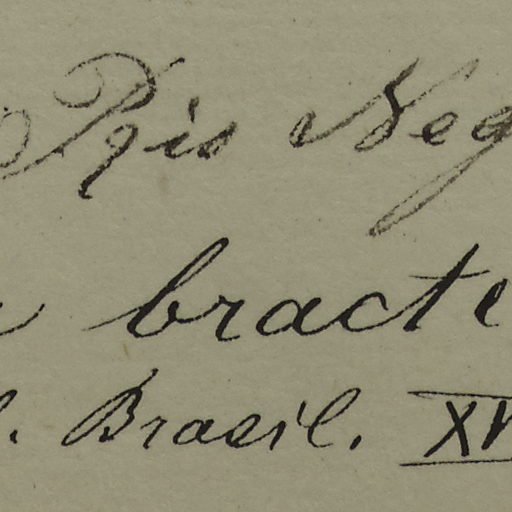 Rio Neg
bracte
. Brasil. XV